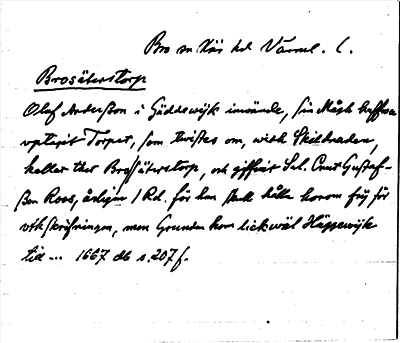 Bro sn Näs hd Värml. l.
Brosäterstorp
Olof Andersson i Gäddewijk inwände, sin Mågh haffwa
vptagit Torpet, som twistes om, widh Skillnaden,
kallar thet Brosäterstorp, och giffuit Sal. Cnut Gustaf-
ßon Roos, årligen 1 Rd. för han skall hålla honom frij för
vthskrifningen, men Grunden kom lickwäl Häggewijk
till ... 1667 db s. 207 f.